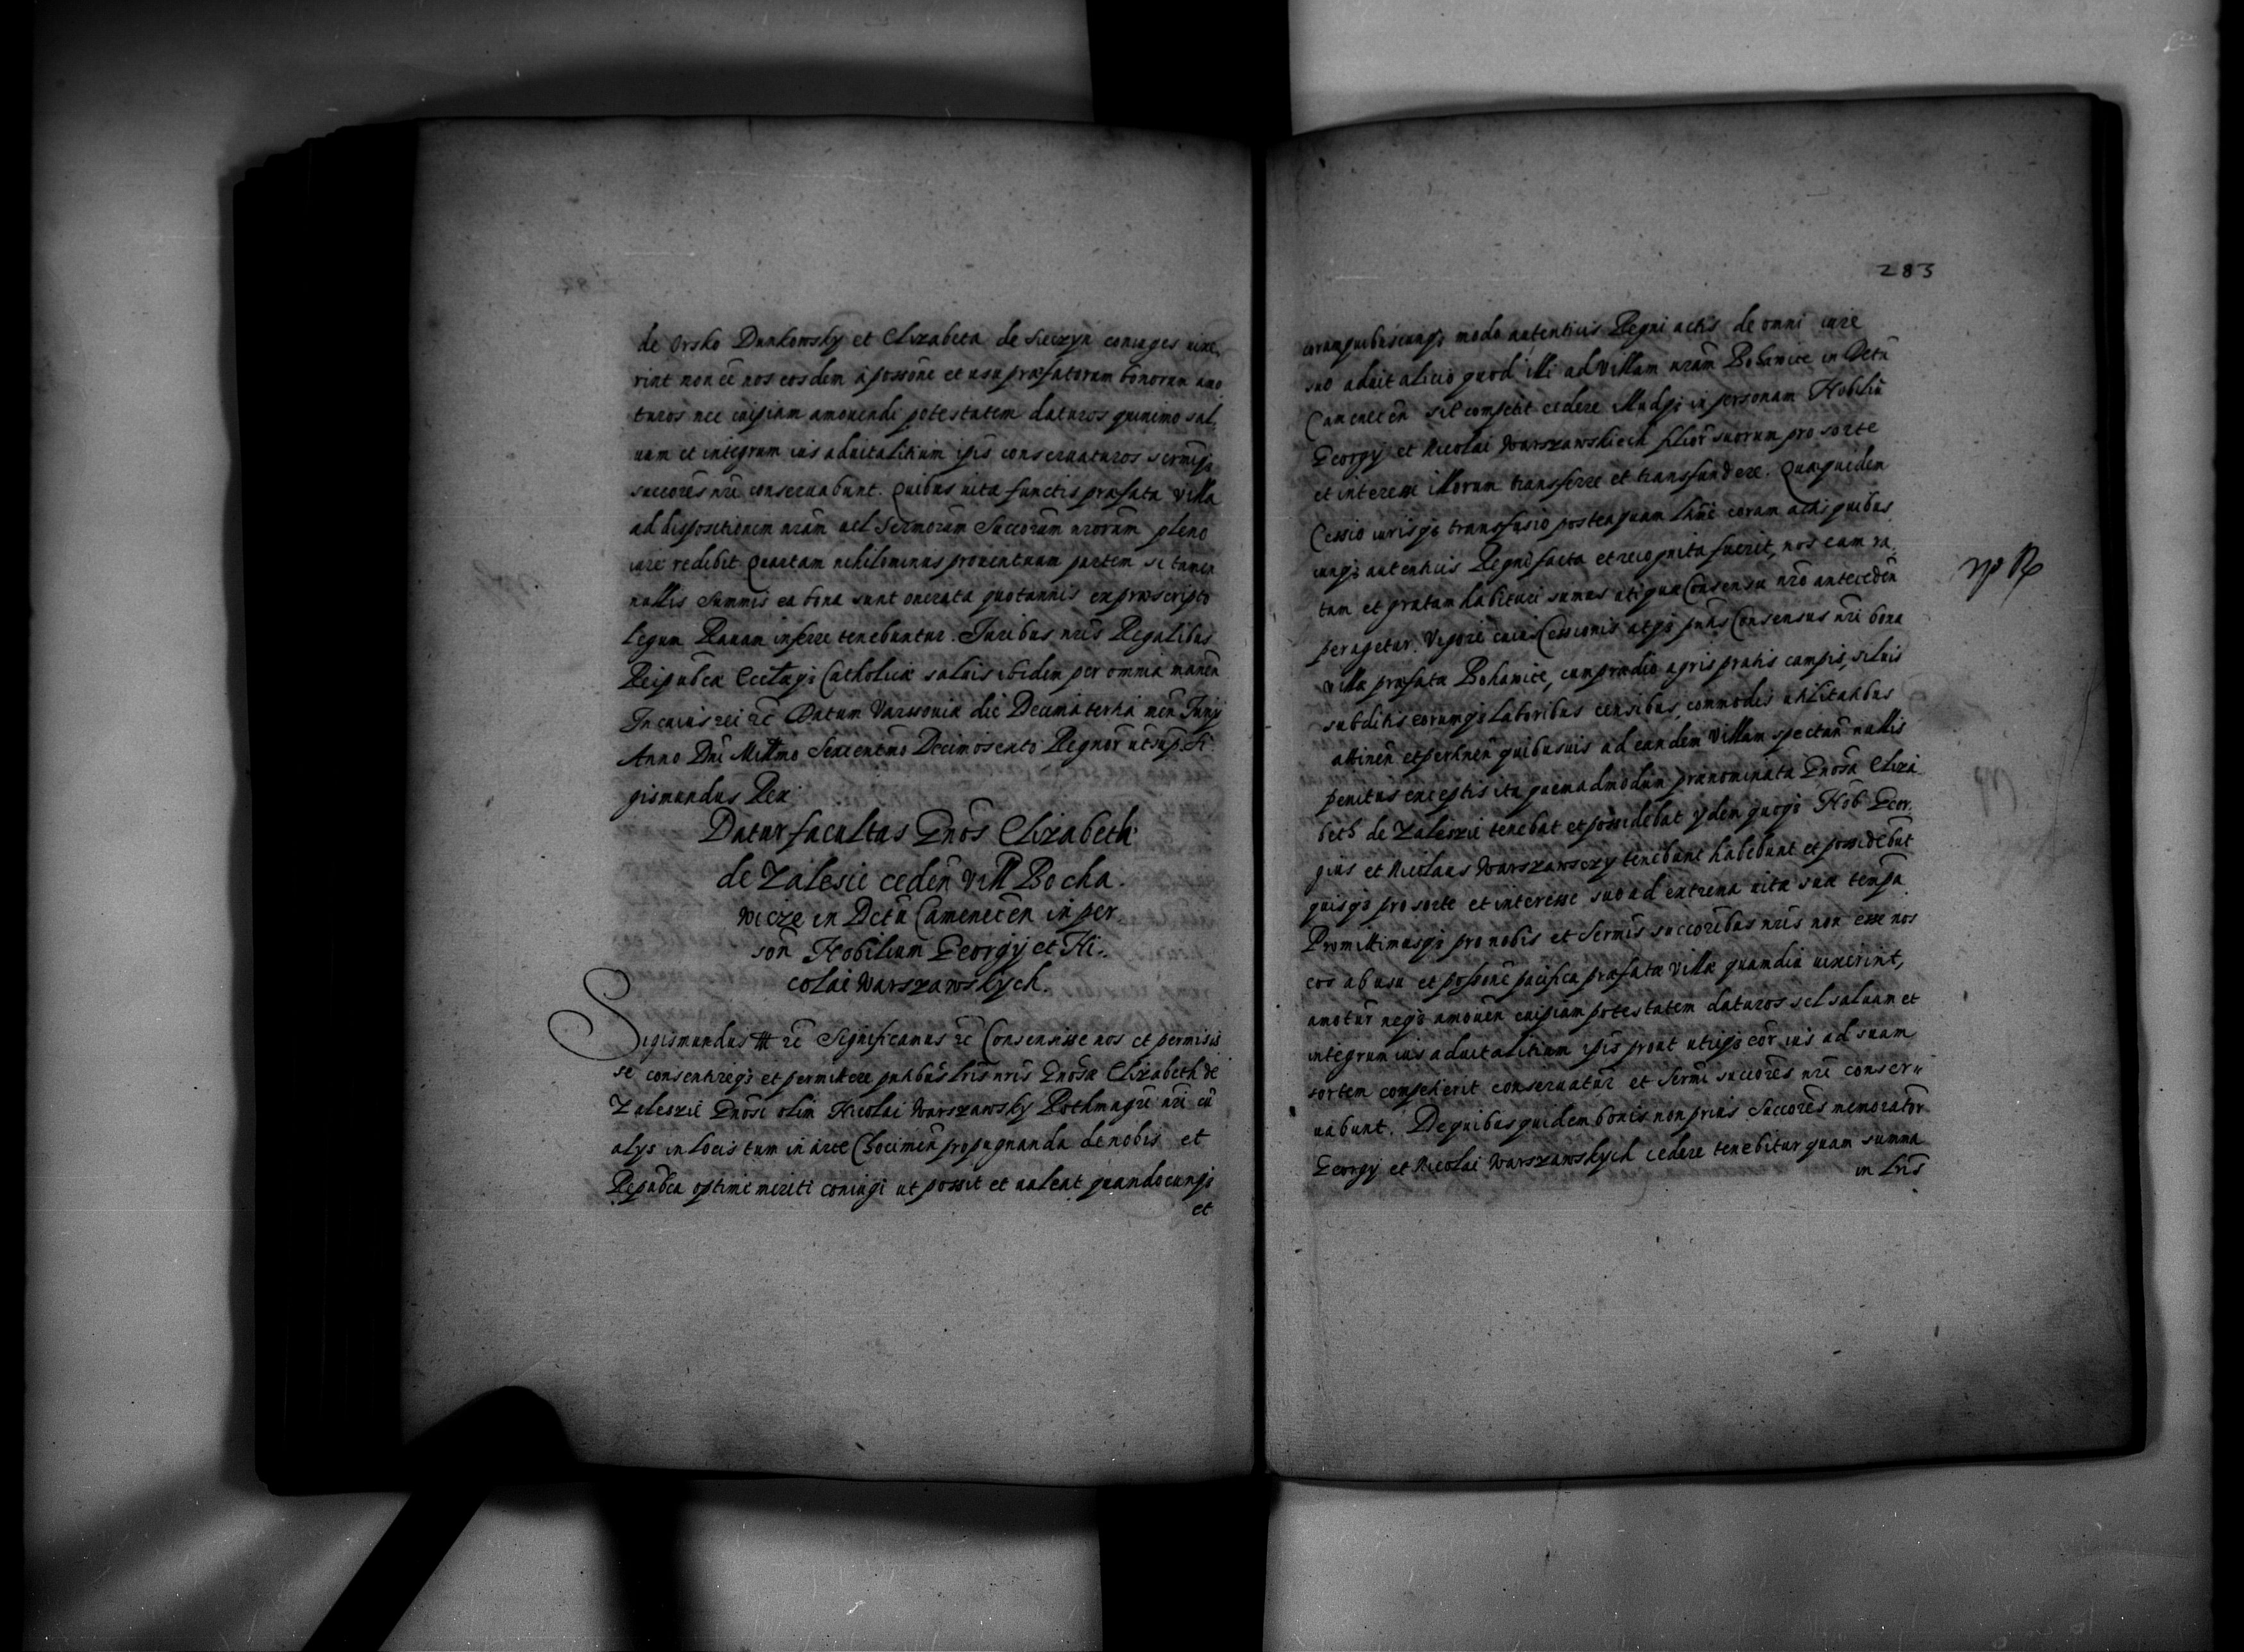 de Orsko Dunkowsky et Elizabeta de Sieczyn coniuges uixe,
rint non eē nos eosdem à possōne et usu præfatorum bonorum amo
turos nec cuipiam amouendi potestatem daturos quinimo sal,
uum et integrum ius aduitalitium ipīs conseruaturos sermiqꝫ
succorēs nrī conseruabunt. Quibus uita functis præfata Villa
ad dispositionem nrām uel Sermorūm Succorūm nrorūm pleno
iure redibit Quartam nihilominus prouentuum partem si tamen
nullis Summis ea bona sunt onerata quotannis ex præscripto
legum Rauam inferre tenebuntur. Iuribus nrīs Regalibus
Reipubcæ Ecctæqꝫ Catholicæ saluis ibidem per omnia manēn
In cuius rei rc̄ Datum Varssouiæ die Decima tertia mēn Iunij
Anno Dnī Millmo Sexcentmo Decimosexto Regnor̄ ut sup. Si
gismundus Rex
Datur facultas Gnōs Elizabeth
de Zalesie cedēn Vill Bocha.
wicze in Dctū Camenecēn in per
sōn Nobilium Georgÿ et Ni..
colai Warszawskych.
Sigismundus III rc̄ Significamus rc̄ Consensisse nos et permisis
se consentireqꝫ et permittere pntibūs lrīs nrīs Gnosæ Elizabeth de
Zaleszie Gnosi olim Nicolai Warszawsky Rothmagrī nrī cū
alÿs in locis tum in arce Chocimēn propugnanda de nobis et
Repubca optime meriti coniugi ut possit et ualeat quandocunqꝫ
et
283
coram quibuscunqꝫ modo autenticis Regni actis de omni iure
suo aduitalitio quod illi ad Villam nrām Bohawice in Dctū
Camenecēn sit competit cedere illudqꝫ in personam Nobiliū
Georgÿ et Nicolai Warszawskiech filior̄ suorum pro sorte
et interesse illorum transferre et transfundere. Quæquidem
Cessio iurisqꝫ transfusio posteaquam coram actis quibus
cunqꝫ autenticis Regni facta et recognita fuerit, nos eam ra,
tam et gratam habituri sumus utiqua Consensu nrō antecedēn
peragetur. Vigore cuius Cessionis atqꝫ pntīs Consensus nrī bona
Villa præfata Bohawice, cum prædio agris pratis campis, siluis
subditis eorumqꝫ laboribus censibus commodis utilitatibus
attinēn et pertinēn quibusuis ad eandem Villam spectān nullis
penitus exceptis ita quemadmodum prænominata Gnosa Eliza
beth de Zaleszie tenebat et possidebat ydem quoqꝫ Nob Geor,
gius et Nicolaus Warszawsczy tenebunt habebunt et possidebūt
quisqꝫ pro sorte et interesse suo ad extrema uitæ suæ tempa
Promittimusqꝫ pro nobis et Sermīs succoribus nrīs non esse nos
eos ab usu et possonē pacifica præfatæ Villæ quamdiu uixerint,
amotur̄ neqꝫ amouēn cuipiam potestatem daturos sed saluum et
integrum ius aduitalitium ipīs prout utriqꝫ eor̄ ius ad suam
sortem competierit conseruatur̄ et Sermi succorēs nrī conser,,
uabunt. De quibus quidem bonis non prius Succorēs memorator̄
Georgÿ et Nicolai Warszawskych cedere tenebitur quam summa
in lrīs